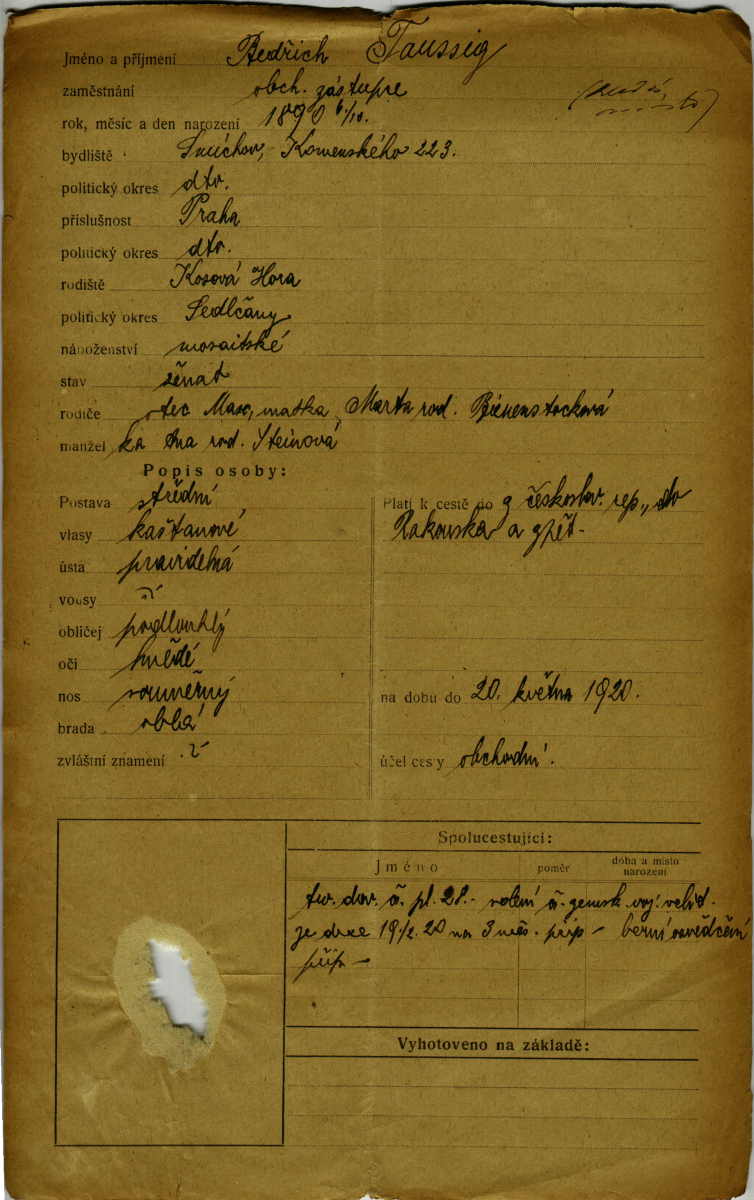 Jméno a příjmení Bedřich Taussig
zaměstnání obch. zástupce
rok, měsíc a den narození 1890 6/10.
bydliště Smíchov, Komenského 223.
politický okres dto.
příslušnost Praha
politický okres dto.
rodiště Kosová Hora
politický okres Sedlčany
náboženství mosaitské
stav ženat
rodiče otec Max, matka Marta rod. Bienenstocková
manžel ka rod. Steinová
Popis osoby:
Postava střední
vlasy kaštanové
ústa pravidelná
vousy
obličej podlouhlý
oči hnědé
nos souměrný
brada oblá
zvláštní znamení
Platí k cestě do z českoslov. rep., do
Rakouska a zpět.
na dobu do 20. května 1920.
účel cesty obchodní.
Spolucestující:
Jméno poměr doba a místo narození
pl. 28. zemsk. voj. velit.
ze dne 19./2. 20 na 3 měs. přip – berní osvědčení
přip –
Vyhotoveno na základě: